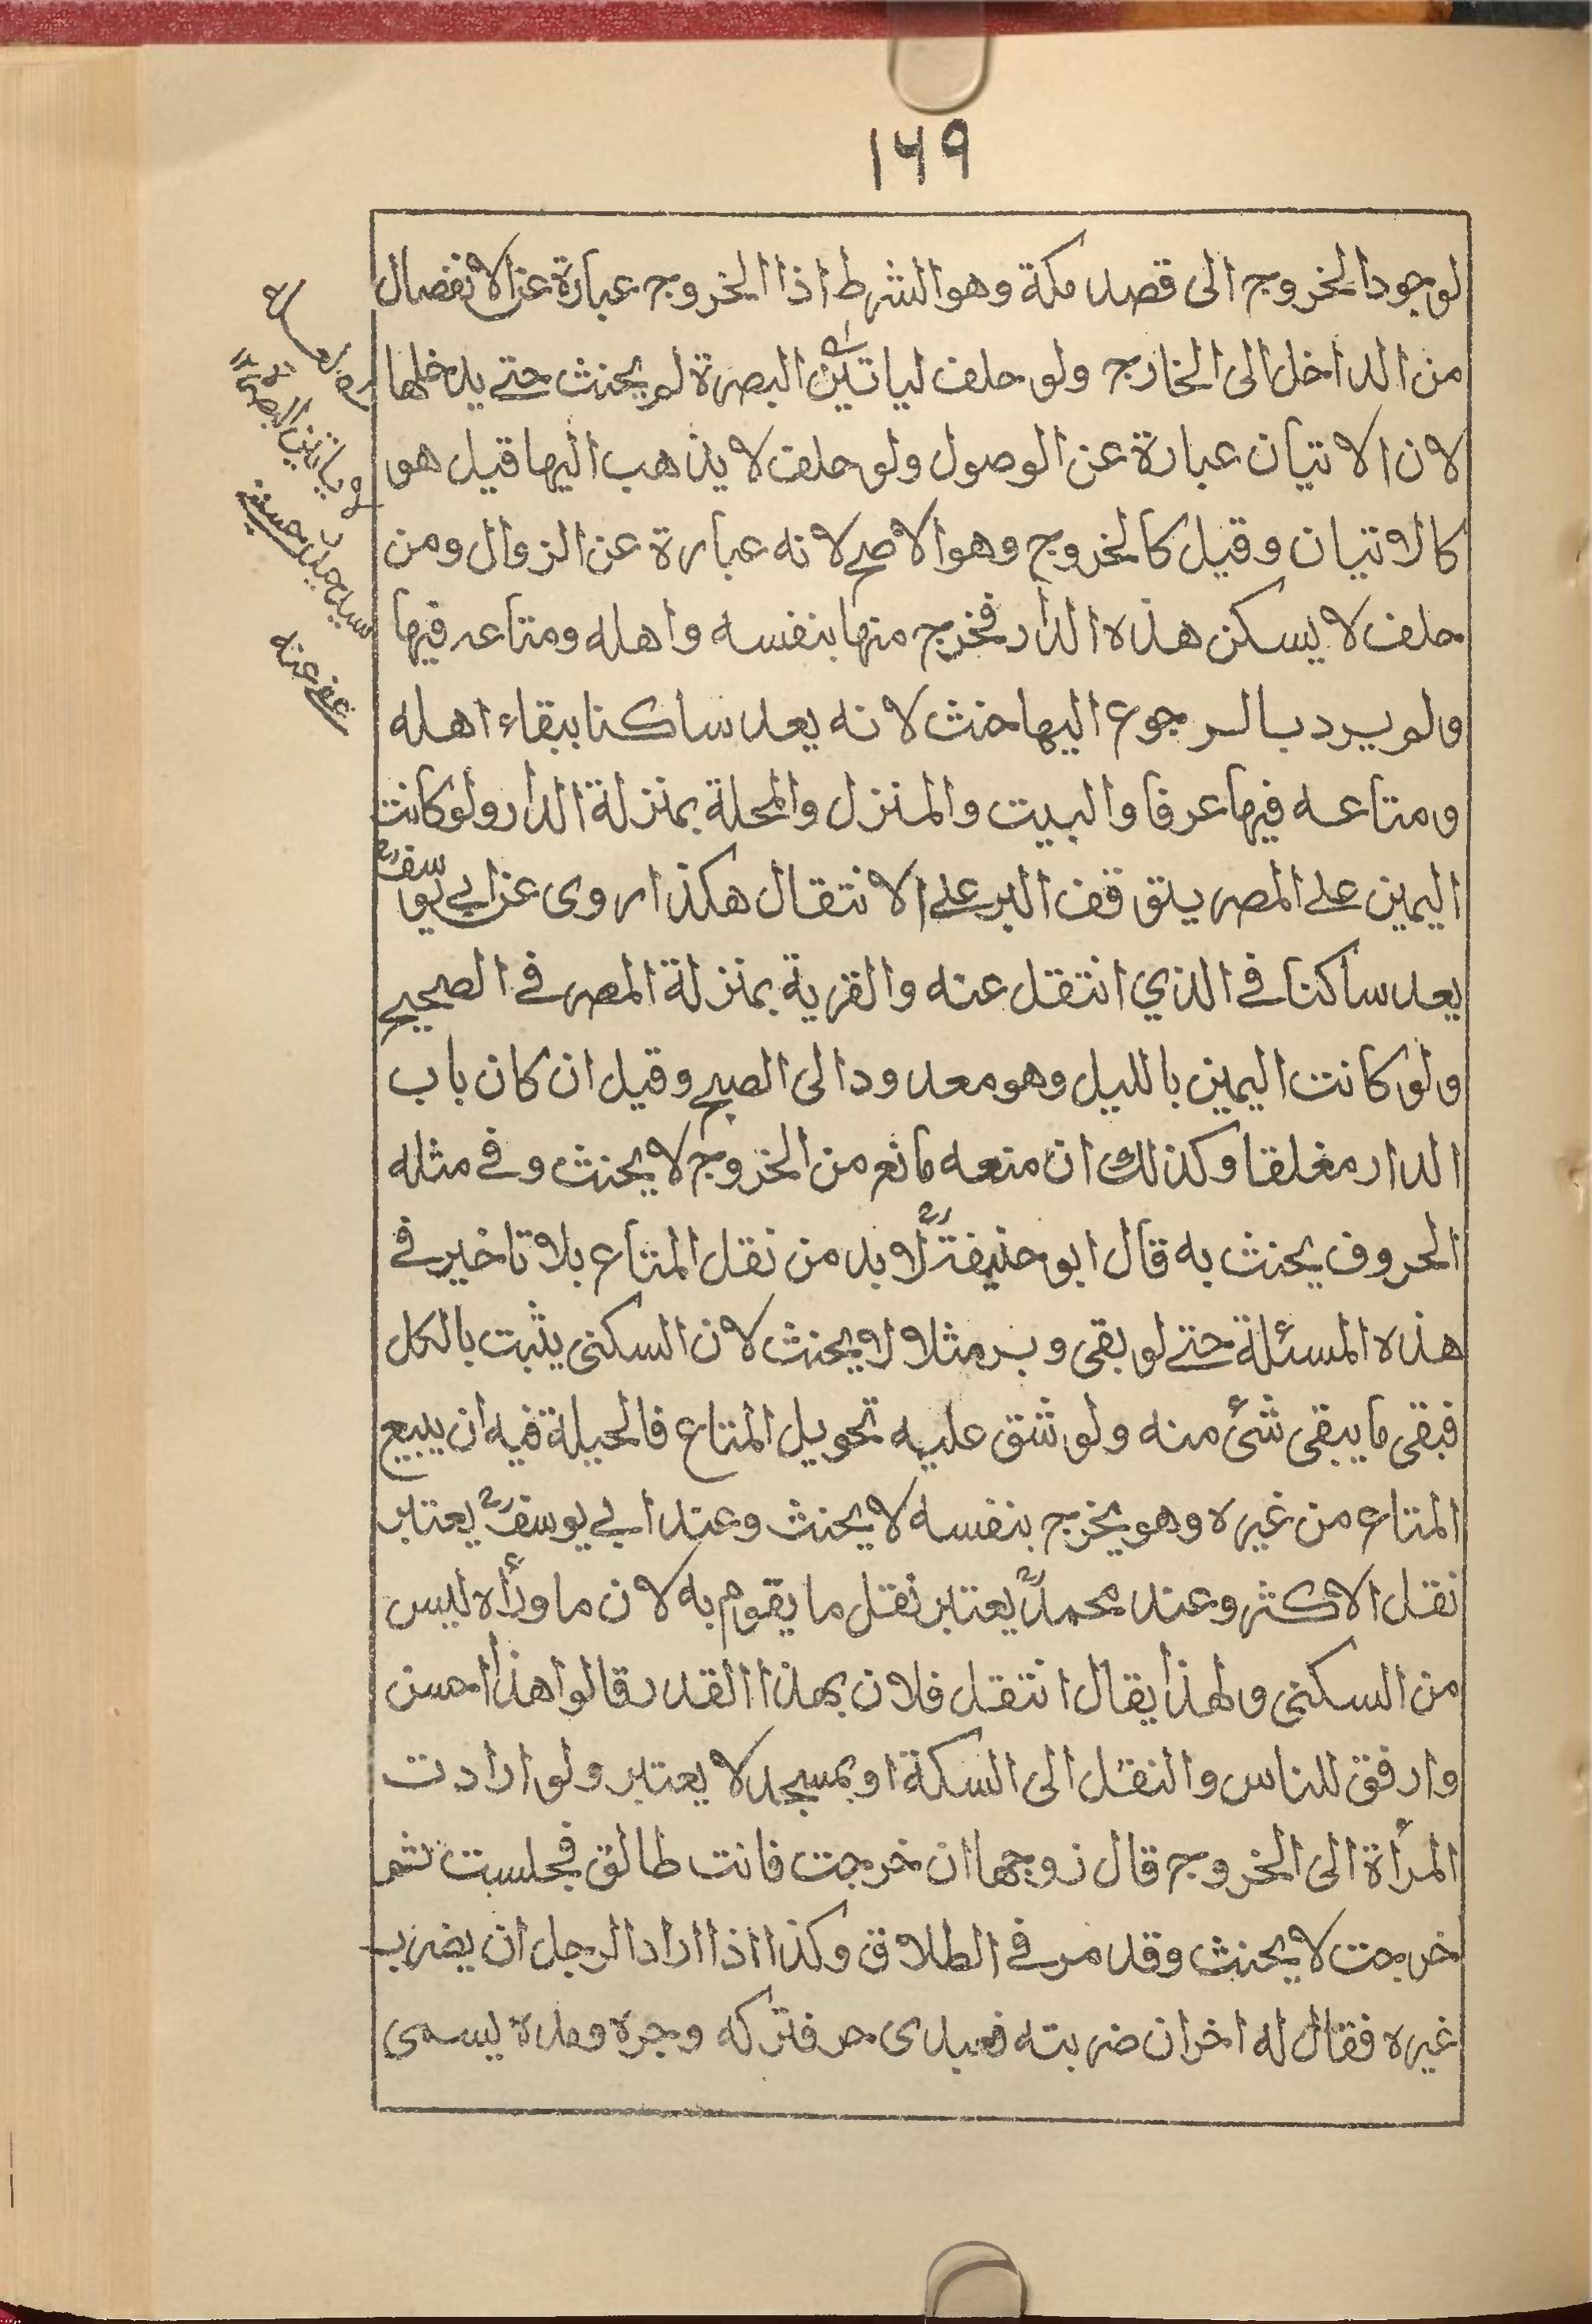 ١٦٩
لوجود الخروج الى قصد مكة وهو الشرط اذا الخروج عبارة عن الانفصال
من الداخل الى الخارج ولو حلف لياتين البصرة لم يحنث حتے يدخلها
لان الاتيان عبارة عن الوصول ولو حلف لا يذهب اليها قيل هو
كالاتيان وقيل كالخروج وهو الاصح لانه عبارة عن الزوال ومن
حلف لا يسكن هذه الدار فخرج منها بنفسه واهله ومتاعه فيها
ولم يرد بالرجوع اليها حنث لانه يعد ساكنا ببقاء اهله
ومتاعه فيها عرفا والبيت والمنزل والمحلة بمنزلة الدار ولو كانت
اليمين علے المصر يتوقف البر علے الانتقال هكذا روى عن ابي يوسفؒ
يعد ساكنا في الذي انتقل عنه والقرية بمنزلة المصر في الصحيح
ولو كانت اليمين بالليل وهو معدود الى الصبح وقيل ان كان باب
الدار مغلقا وكذلك ان منعه مانع من الخروج لا يحنث وفي مثله
الحروف يحنث به قال ابو حنيفةؒ لا بد من نقل المتاع بلا تاخير في
هذه المسئلة حتے لو بقى وبر مثلا لا يحنث لان السكنى يثبت بالكل
فبقى ما يبقى شئ منه ولو شق عليه تحويل المتاع فالحيلة فيه ان يبيع
المتاع من غيره وهو يخرج بنفسه لا يحنث وعند ابي يوسفؒ يعتبر
نقل الاكثر وعند محمدؒ يعتبر نقل ما يقوم به لان ما وراه ليس
من السكنى ولهذا يقال انتقل فلان بهذا القدر قالوا هذا احسن
وارفق للناس والنقل الى السكة او بمسجد لا يعتبر ولو ارادت
المرأة الى الخروج قال زوجها ان خرجت فانت طالق فجلست ثم
خرجت لا يحنث وقد مر في الطلاق وكذا اذا اراد الرجل ان يضرب
غيره فقال له اخر ان ضربته فعبدى حر فتركه وجره ومدة يسمى
لياتين البصرة ١٢
سيد حسين
عفے عنه